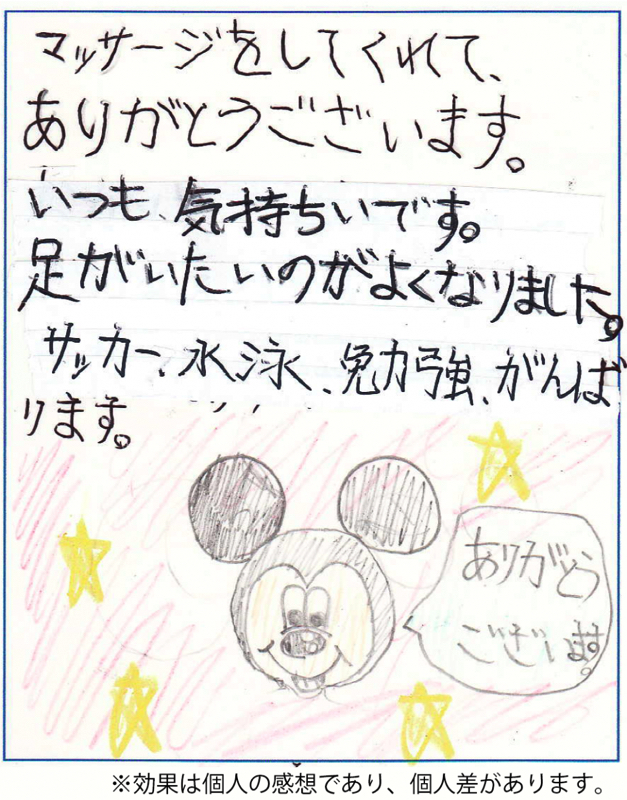 マッサージをしてくれて、
ありがとうございます。
いつも、気持ちいです。
足がいたいのがよくなりました。
サッカー、水泳、勉強、がんば
ります。
ありがとう
ございます。
※効果は個人の感想であり、個人差があります。